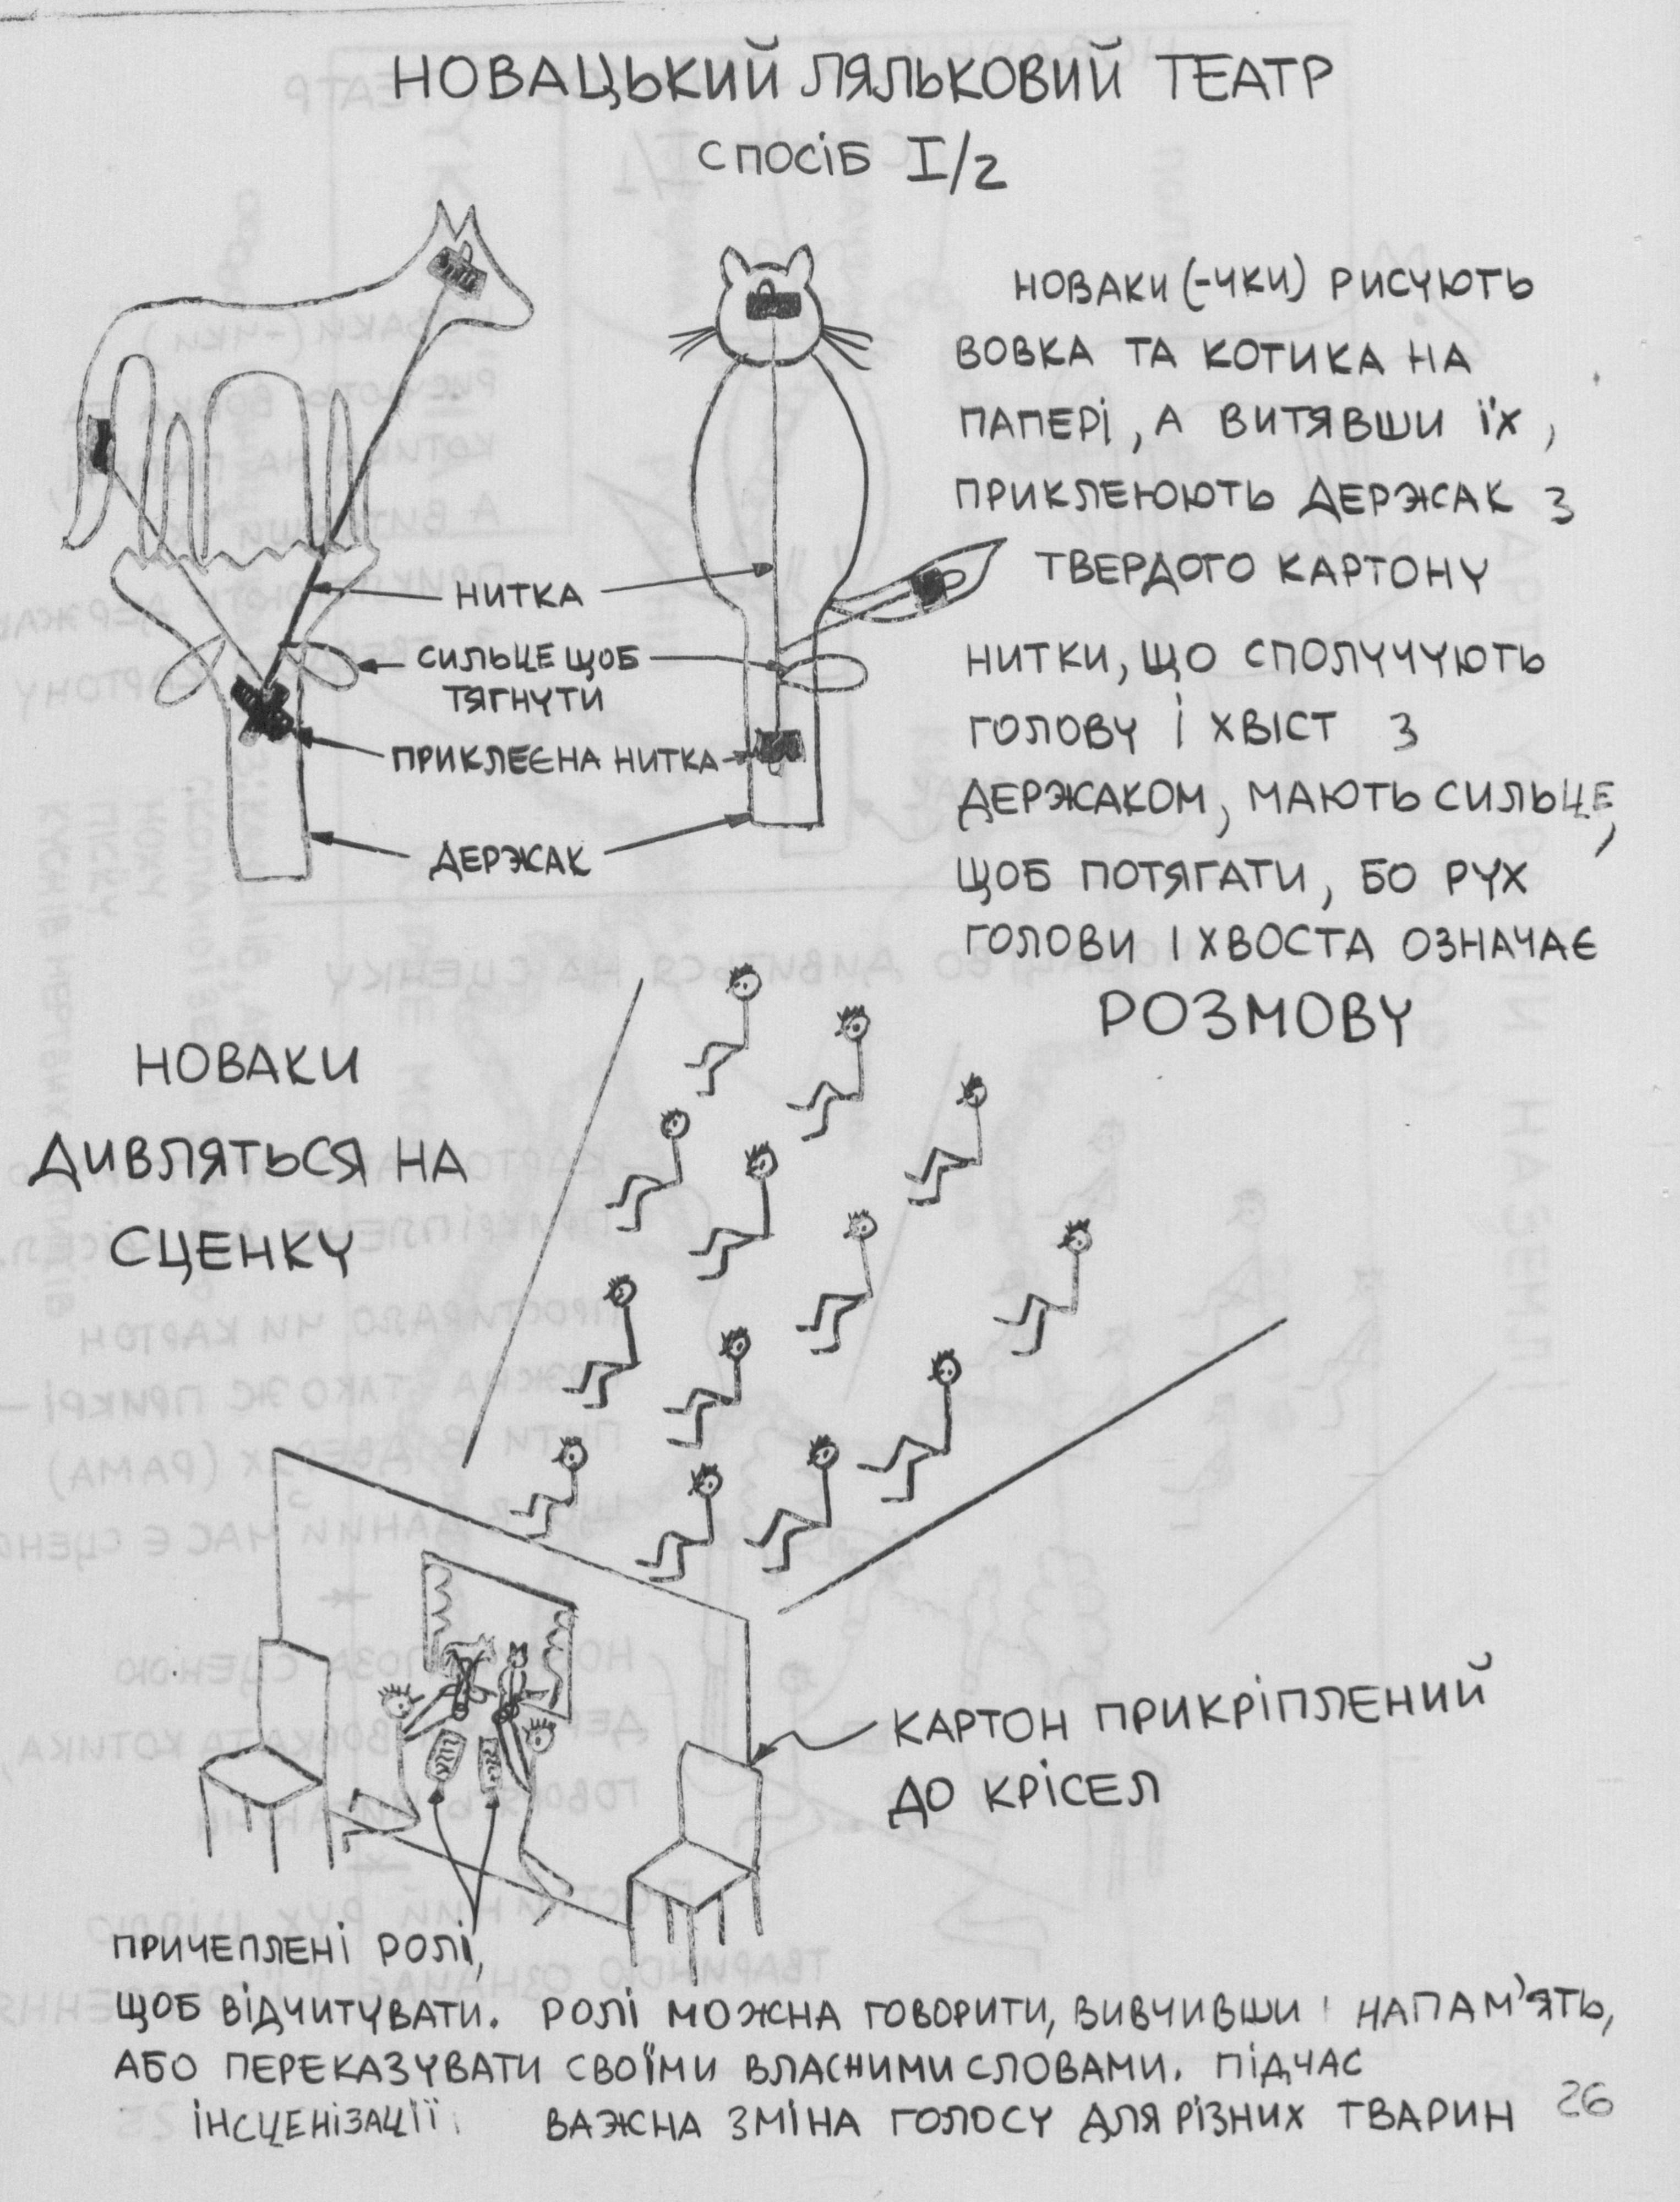 НОВАЦЬКИЙ ЛЯЛЬКОВИЙ ТЕАТР
СПОСІБ I/2
НОВАКИ (-ЧКИ) РИСУЮТЬ
ВОВКА ТА КОТИКА НА
ПАПЕРІ, А ВИТЯВШИ ЇХ,
ПРИКЛЕЮЮТЬ ДЕРЖАК З
ТВЕРДОГО КАРТОНУ
НИТКА
СИЛЬЦЕ ЩОБ
ТЯГНУТИ
ПРИКЛЕЄНА НИТКА
ДЕРЖАК
НИТКИ, ЩО СПОЛУЧУЮТЬ
ГОЛОВУ І ХВІСТ З
ДЕРЖАКОМ, МАЮТЬ СИЛЬЦЕ,
ЩОБ ПОТЯГАТИ, БО РУХ
ГОЛОВИ І ХВОСТА ОЗНАЧАЄ
РОЗМОВУ
НОВАКИ
ДИВЛЯТЬСЯ НА
СЦЕНКУ
КАРТОН ПРИКРІПЛЕНИЙ
ДО КРІСЕЛ
ПРИЧЕПЛЕНІ РОЛІ,
ЩОБ ВІДЧИТУВАТИ. РОЛІ МОЖНА ГОВОРИТИ, ВИВЧИВШИ НАПАМ'ЯТЬ,
АБО ПЕРЕКАЗУВАТИ СВОЇМИ ВЛАСНИМИ СЛОВАМИ. ПІДЧАС
ІНСЦЕНІЗАЦІЇ ВАЖНА ЗМІНА ГОЛОСУ ДЛЯ РІЗНИХ ТВАРИН
26